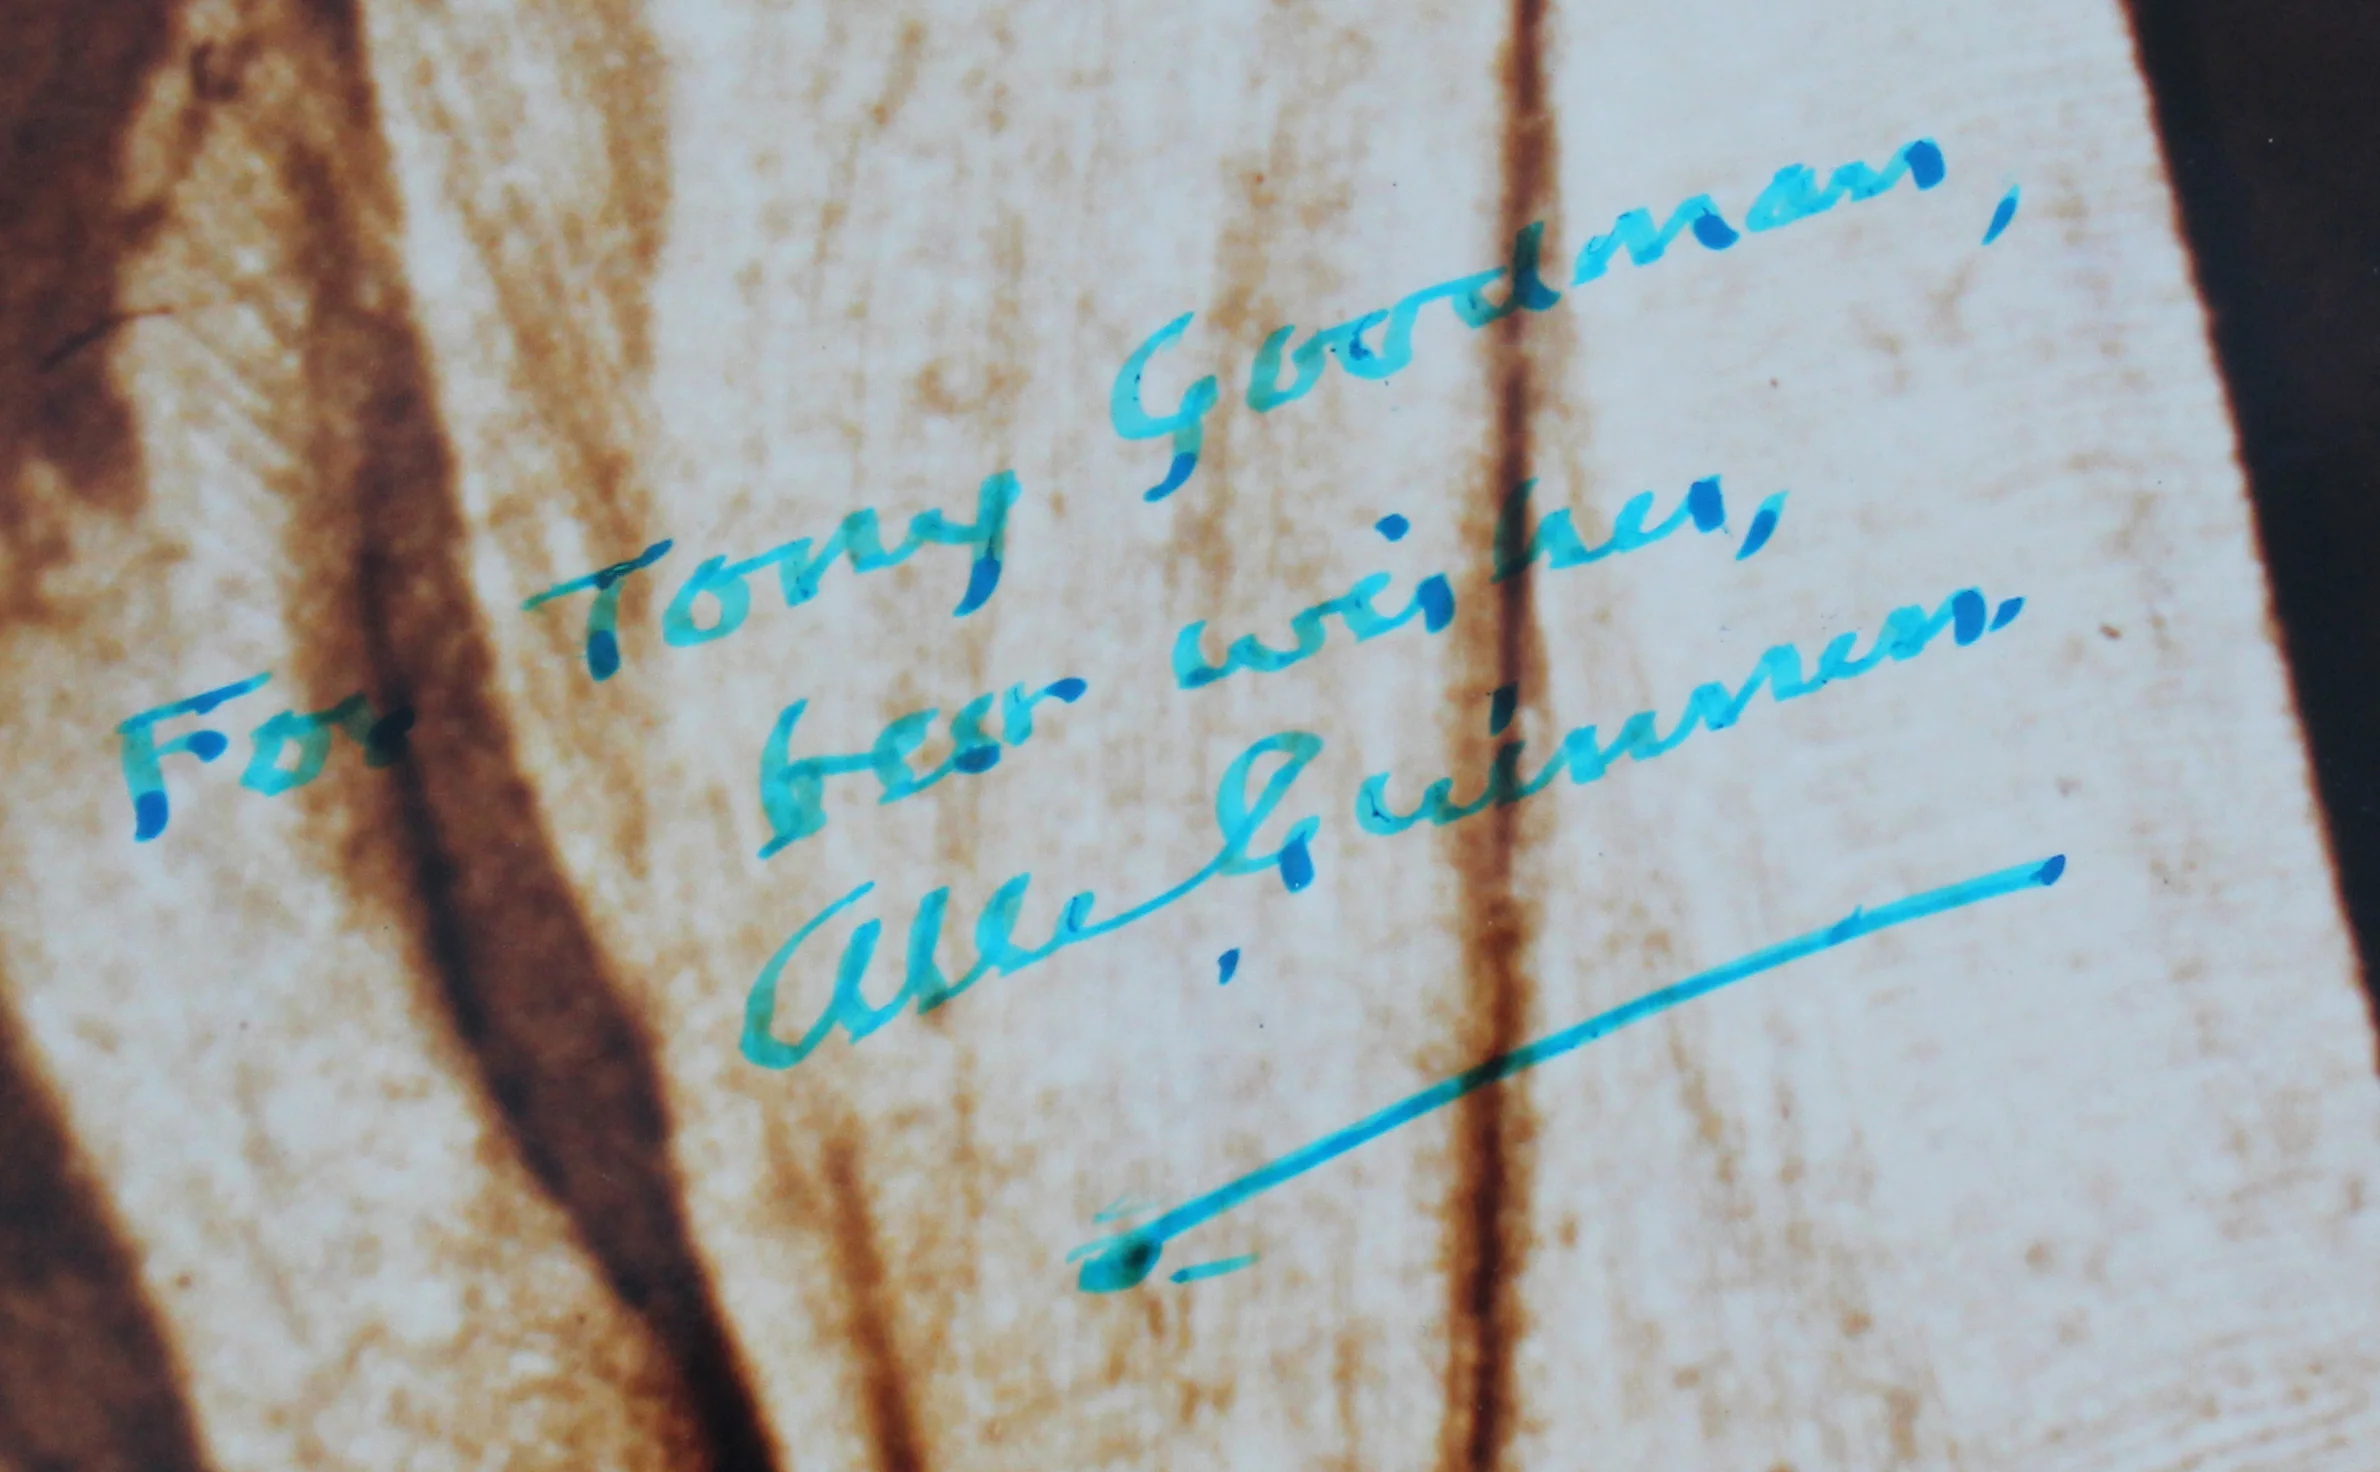 For Tony Goodman,
best wishes,
Alec Guinness.